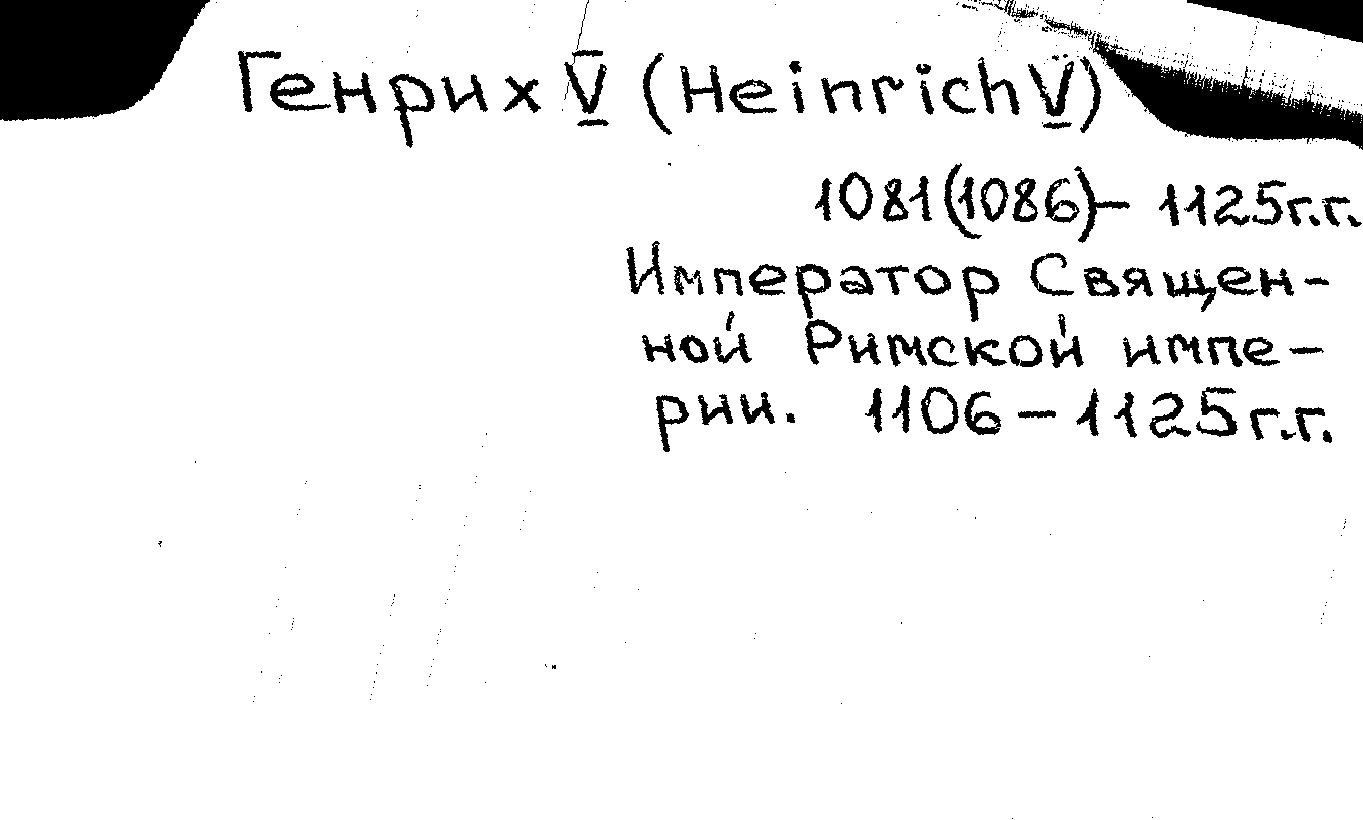 Генрих V (Heinrich V)
1081(1086)– 1125г.г.
Император Священ-
ной Римской импе-
рии. 1106 – 1125г.г.